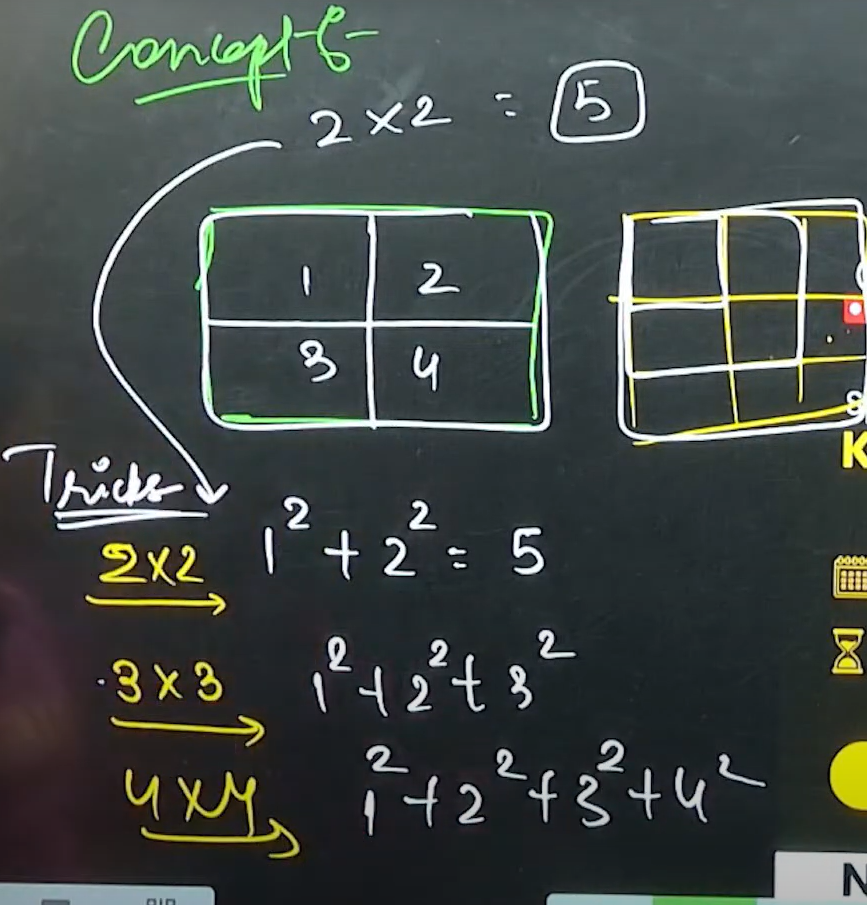 Concept :-
2 × 2 = 5
1 2
3 4
Tricks
2×2 1² + 2² = 5
3 × 3 1² + 2² + 3²
4 × 4 1² + 2² + 3² + 4²
K
N